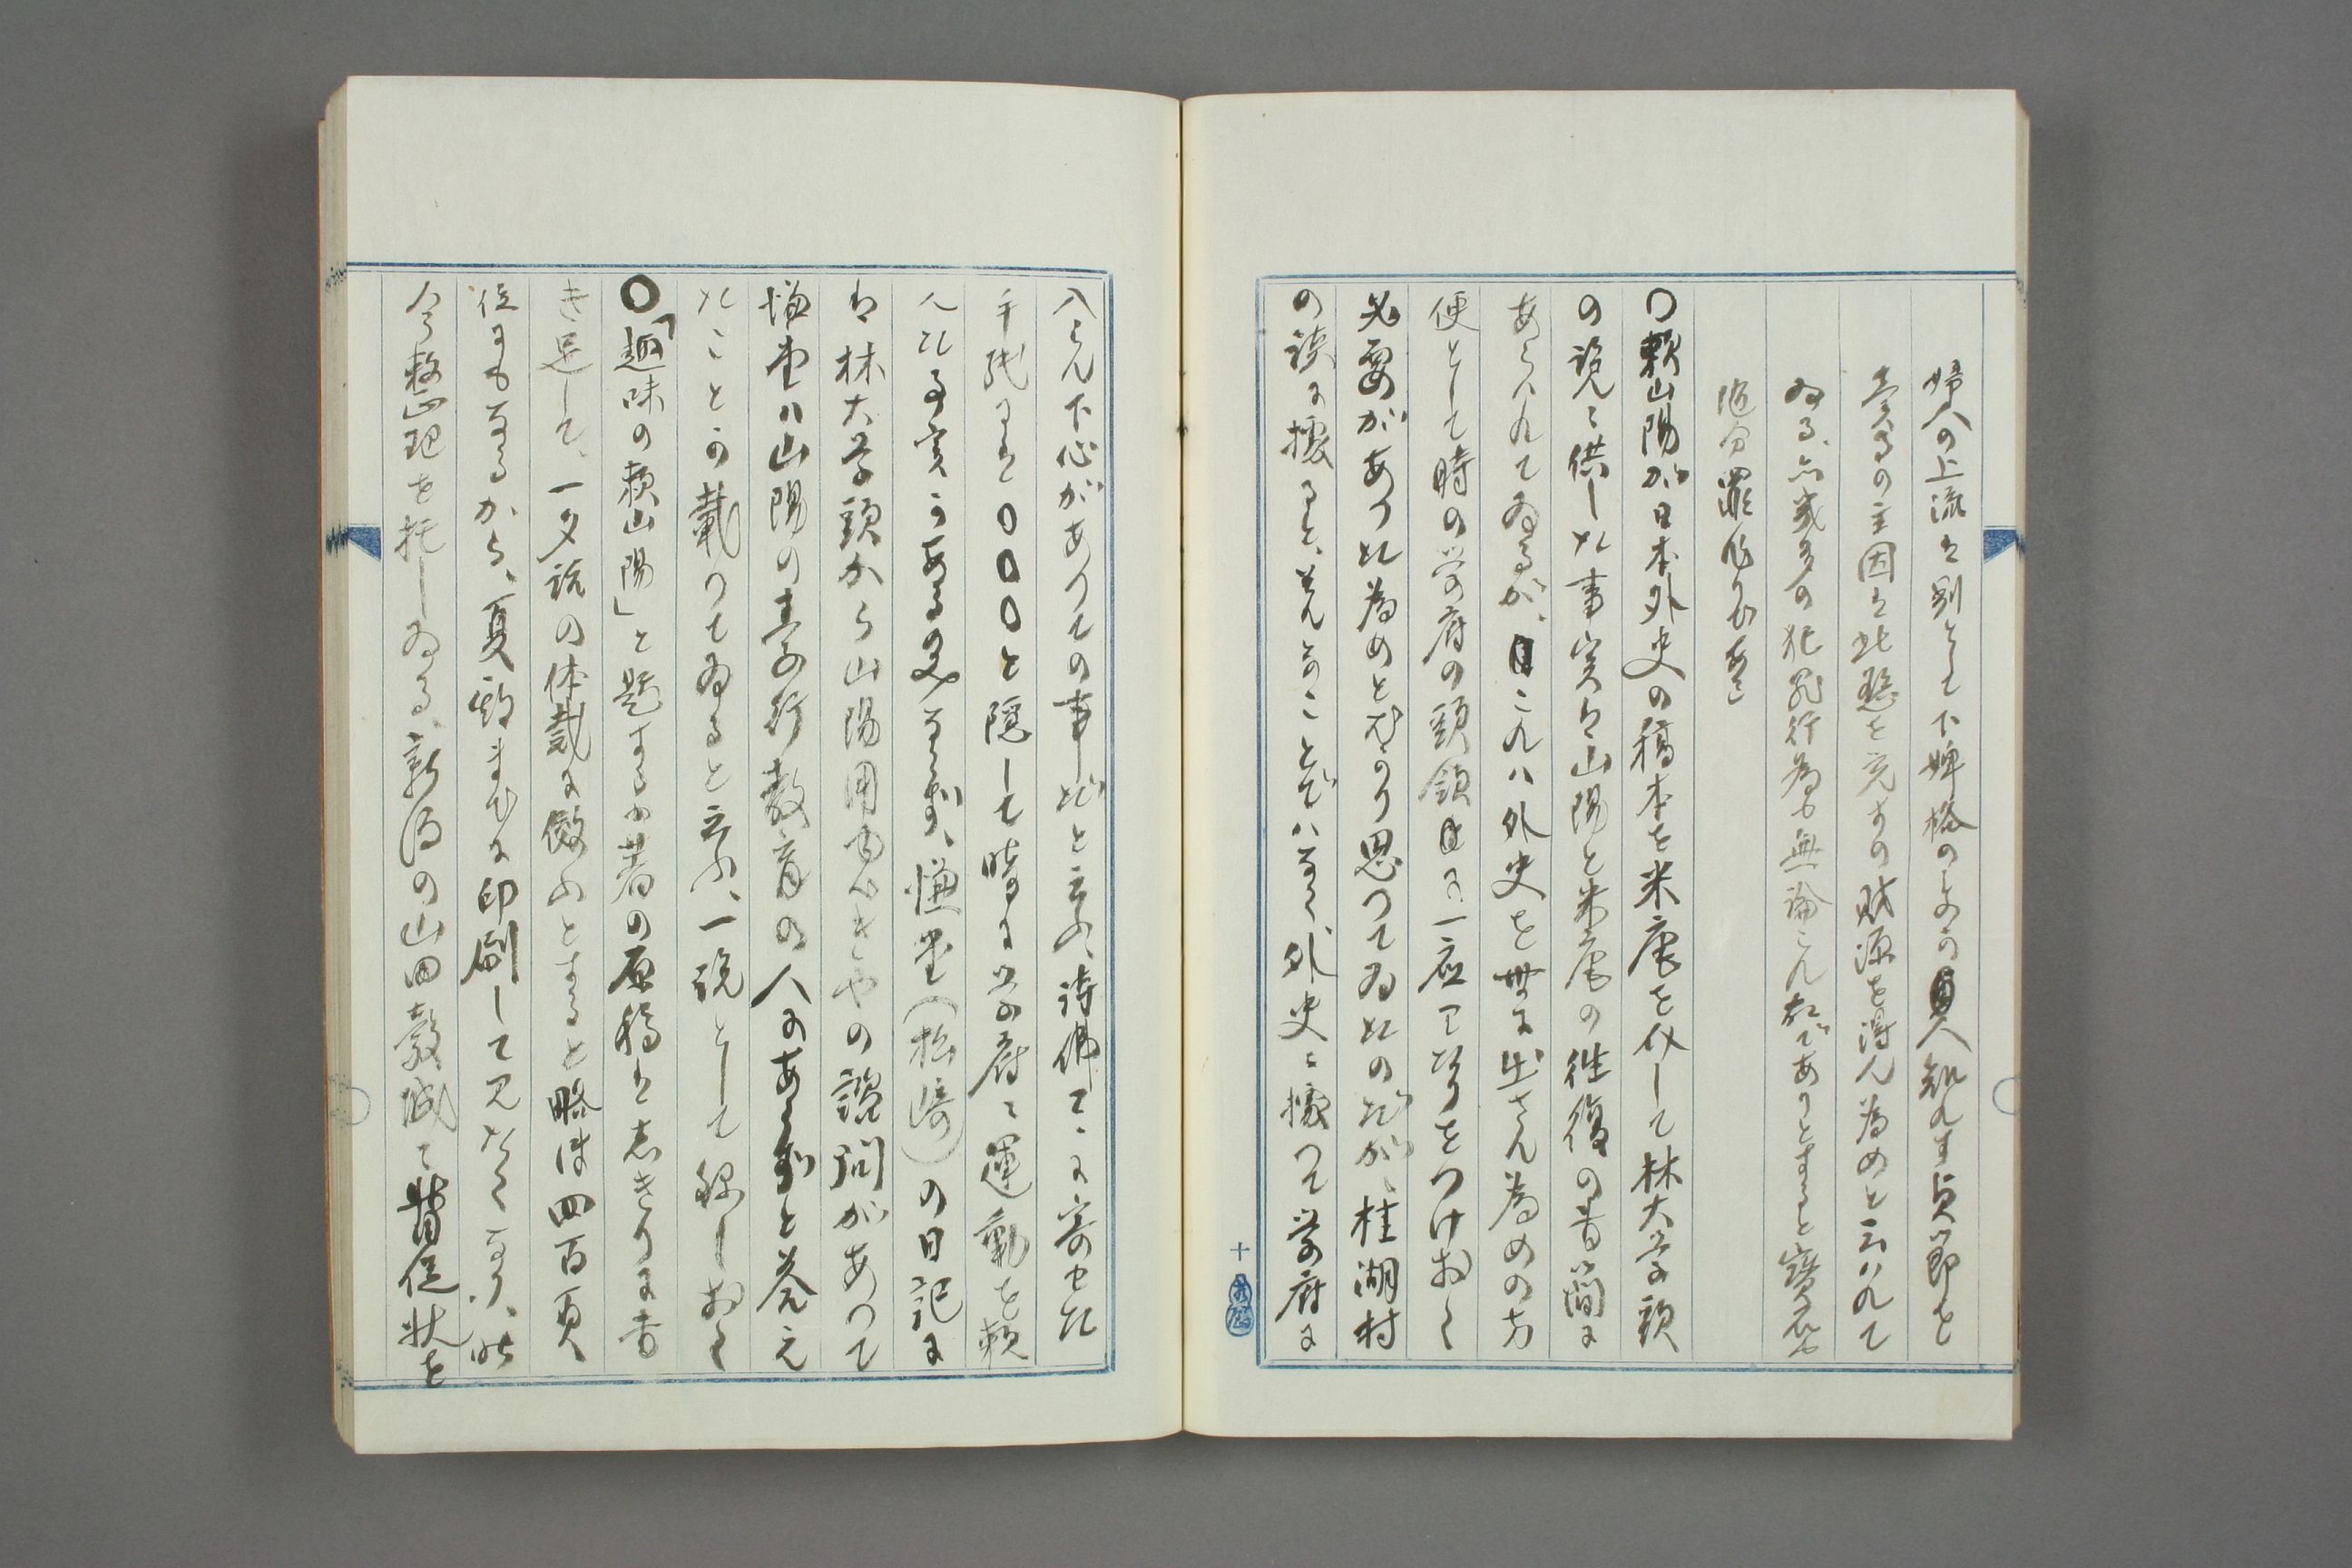 婦人の上流は別として下婢格のものの貞操知れず貞節を
賣るの主因は此慾を充すの財源を得ん為めと云はれて
ゐる、亦幾多の犯罪行為も無論これであるとすると寶石も
随分罪作りである
〇賴山陽が日本外史の稿本を米庵を介して林大学頭
の説に供した事実は山陽と米庵の往復の書簡に
あらハれてゐるが、これハ外史を世に出さん為めの方
便として時の学府の頭領に一応ワタりをつけおく
必要があつた為めとばかり思つてゐたのだが、桂湖村
の談に據ると、そんなことでハなく外史に據つて学府に
入らん下心があつての事だと云ふ、詩佛に寄せた
手紙には〇〇〇と隠して時に学府に運動を頼
んだ事実があるのみならず、慊堂(松崎)の日記に
は林大学頭から山陽用ゆべきやの諮問があつて
慊堂ハ山陽の素行教育の人にあらずと答え
たことが載つてゐると云ふ、一説として録しおく
〇「趣味の賴山陽」と題する小著の原稿はしきりに書
き足して、一夕話の体裁に倣ふとすると略ぼ四百頁
位にもなるから、夏頃までに印刷して見たくなり、昨
今整理を托しゐる、新潟の山田穀城に督促状を
十